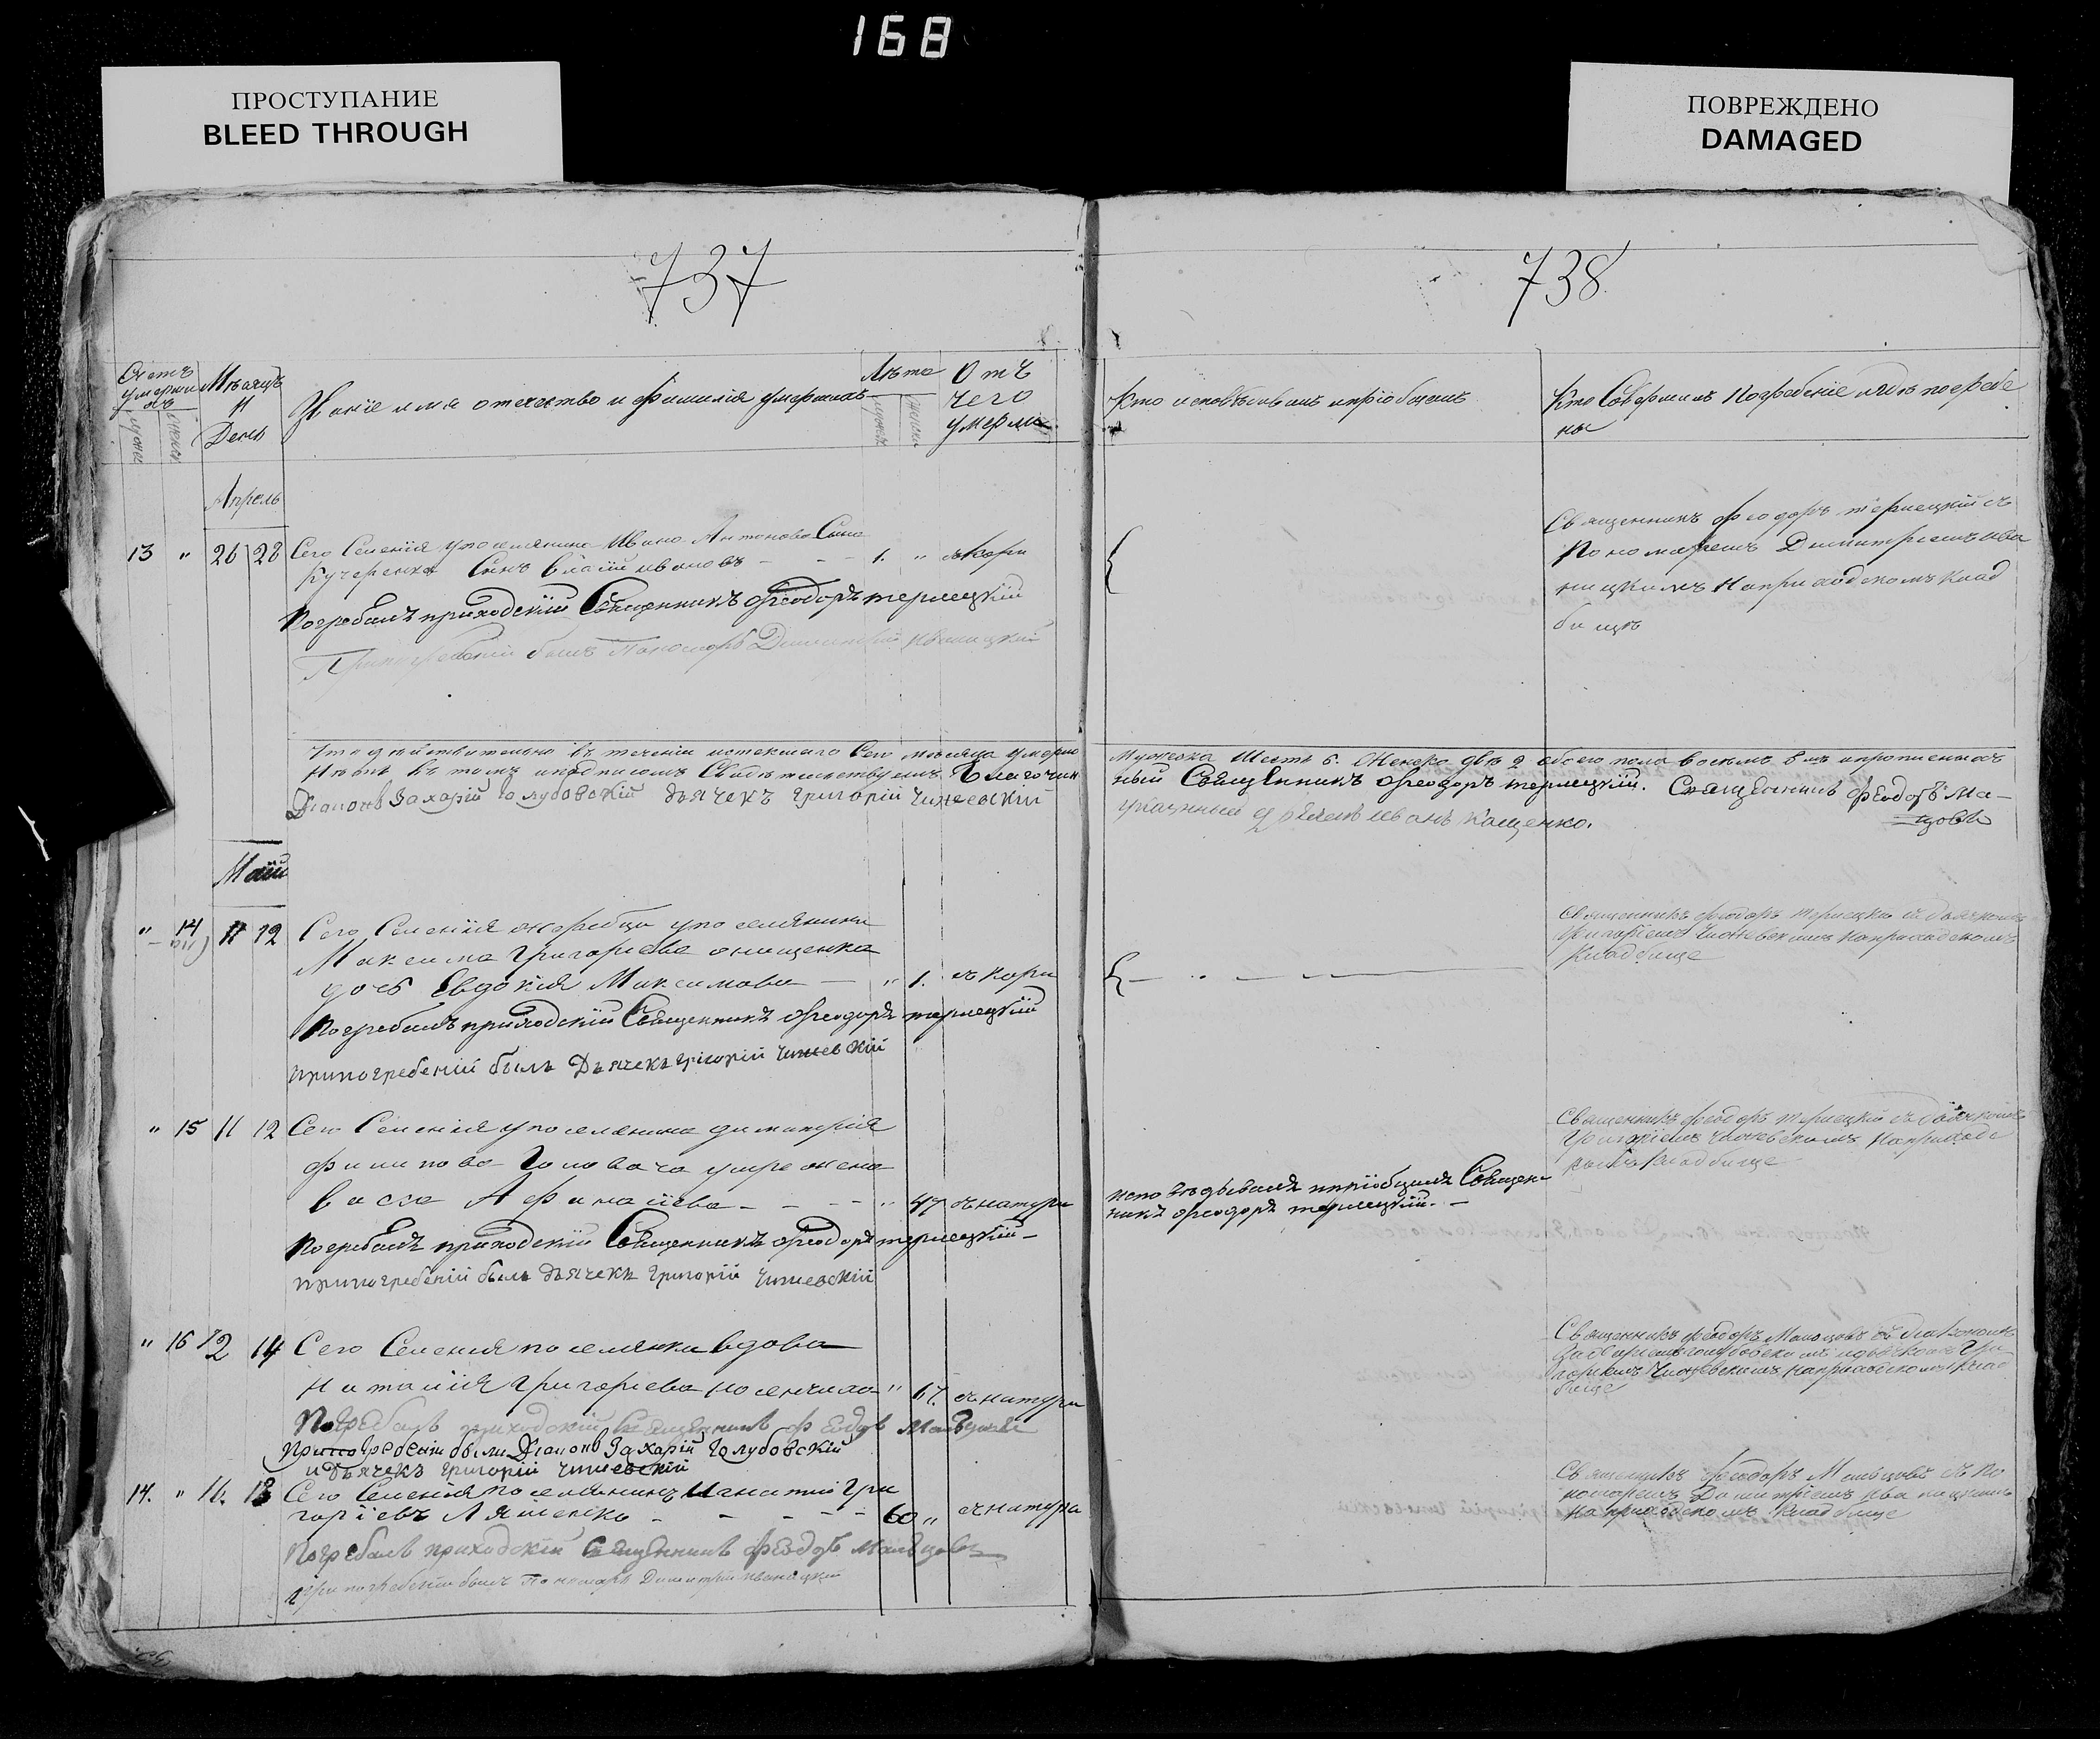 168
ПРОСТУПАНИЕ
BLEED THROUGH
ПОВРЕЖДЕНО
DAMAGED
737
738
Счетъ умершихъ
Мѣсяцъ и День
Званіе имя отечество и фамилія умершихъ
Лѣта
Отъ чего умерли
Кто исповѣдывалъ и пріобщалъ
Кто Совершалъ Погребеніе и гдѣ погребены
Апрель
13 " 26 28 Сего Селенія упоселянина Ивана Антонова Сына
Кучеренка Сынъ Власій Ивановъ - - 1. " съ кори
Погребалъ приходскій Священникъ Феодоръ терлецкій
При погребеніи былъ Пономарь Димитрій Иваницкій
Священникъ Феодоръ терлецкій съ
Пономаремъ Димитріемъ Ива
ницкимъ На приходскомъ Клад
бищѣ
Что дѣйствительно въ теченіи истекшаго Сего мѣсяца умерло
Мужеска Шесть 6. Женска двѣ 2 обоего пола восемь 8
въ томъ и подписомъ Свидѣтельствуемъ. Благочин
ный Священникъ Феодоръ терлецкій. Священникъ Феодоръ Ма-
льцовъ
Діаконъ Захарій Голубовскій дьячекъ Григорій Чижевскій
Иванъ Кащенко.
Май
" 14 11 12 Сего Селенія упоселянина
Максима Григорьева онищенка
дочь Евдокія Максимова — " 1. съ кори
Погребалъ приходскій Священникъ Феодоръ терлецкій
при погребеніи былъ Дьячекъ Григорій Чижевскій
Священникъ Феодоръ терлецкій съ дьячкомъ
Григоріемъ Чижевскимъ На приходскомъ
Кладбище
" 15 11 12 Сего Селенія упоселянина димитрія
филипова Головача умре жена
Васса Афанасіева - - - " 47 съ натури
Погребалъ приходскій Священникъ Феодоръ терлецкій
при погребеніи былъ дьячекъ Григорій Чижевскій
исповѣдывалъ и пріобщалъ Священ-
никъ Феодоръ терлецкій. -
Священникъ Феодоръ терлецкій съ дьячкомъ
Григоріемъ Чижевскимъ На приходс
комъ Кладбище
" 16 12 14 Сего Селенія поселянка вдова
Наталія Григорьева " 67. съ натури
Погребалъ приходскій Священникъ Феодоръ Мальцовъ
При погребеніи были Діаконъ Захарій Голубовскій
и дьячекъ Григорій Чижевскій
Священникъ Феодоръ Мальцовъ съ діакономъ
Захаріемъ Голубовскимъ и дьячкомъ Гри
горіемъ Чижевскимъ На приходскомъ Клад
бище
14. " 16. 18 Сего Селенія поселянинъ Игнатій Гри
горіевъ Ляшенко - - - - - 60 " съ натури
Погребалъ приходскій Священникъ Феодоръ Мальцовъ
При погребеніи былъ Пономарь Димитрій Иваницкій
Священникъ Феодоръ Мальцовъ съ По
номаремъ Димитріемъ Иваницкимъ
На приходскомъ Кладбище